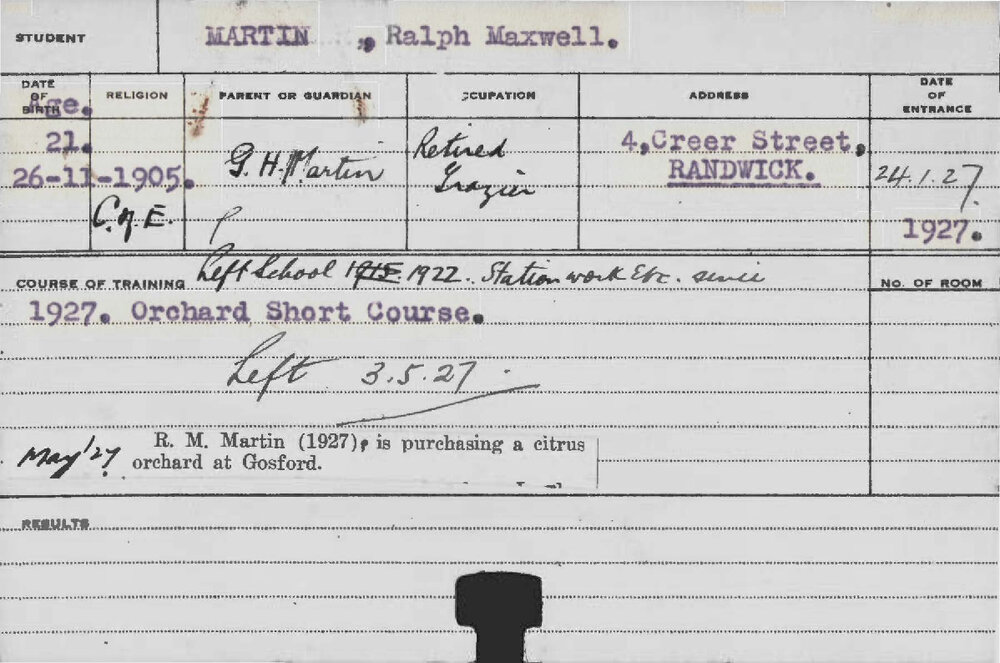 STUDENT MARTIN , Ralph Maxwell.
DATE OF BIRTH RELIGION PARENT OR GUARDIAN OCCUPATION ADDRESS DATE OF ENTRANCE
Age.
21. G. H. Martin Retired 4,Creer Street,
26-11-1905. Grazier RANDWICK. 24.1.27.
C. of E. 1927.
COURSE OF TRAINING Left School 1915 1922. Station work Etc. since NO. OF ROOM
1927. Orchard Short Course.
Left 3.5.27.
May '27 R. M. Martin (1927), is purchasing a citrus
orchard at Gosford.
RESULTS